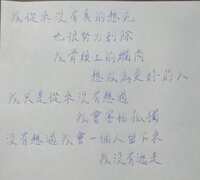 我從來沒有真的想死
也很努力剷除
我骨頭上的腐肉
想成為更好的人
我只是從來沒有想過
我會害怕孤獨
沒有想過我會一個人留下來
我沒有過是